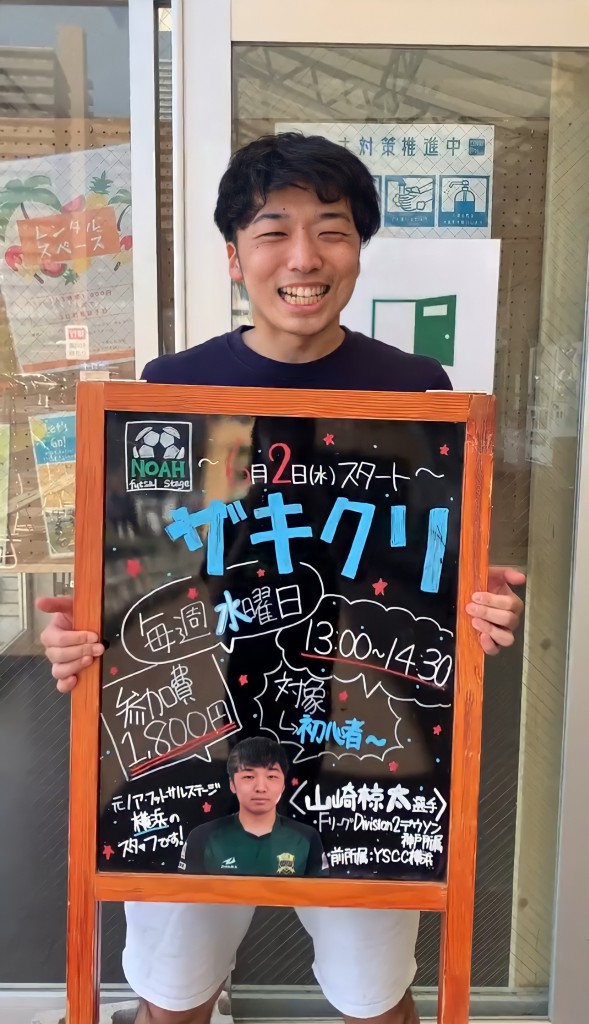 対策推進中
レンタル
スペース
Let's
Go!
NOAH
futsal stage
～6月2日(水)スタート～
ザキクリ
毎週水曜日
13:00~14:30
参加費
1,800円
対象
↳初心者～
元ノアフットサルステージ
横浜の
スタッフです!
〈山崎椋太選手〉
・FリーグDivision2デウソン
神戸所属
・前所属:YSCC横浜